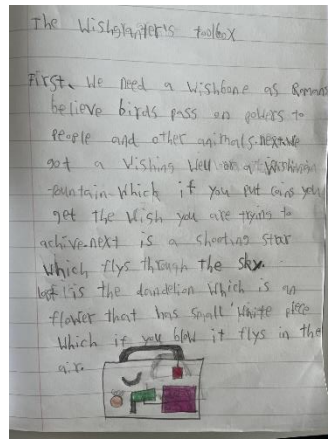 The Wishgranter's toolbox
First, We need a Wishbone as Romans
believe birds pass on powers to
people and other animals. next We
got a Wishing Well or a Wishing
fountain Which if you put coins you
get the Wish you are trying to
achive. next is a shooting star
Which flys through the sky.
last is the dandelion Which is an
flower that has small White piece
Which if you blow it flys in the
air.